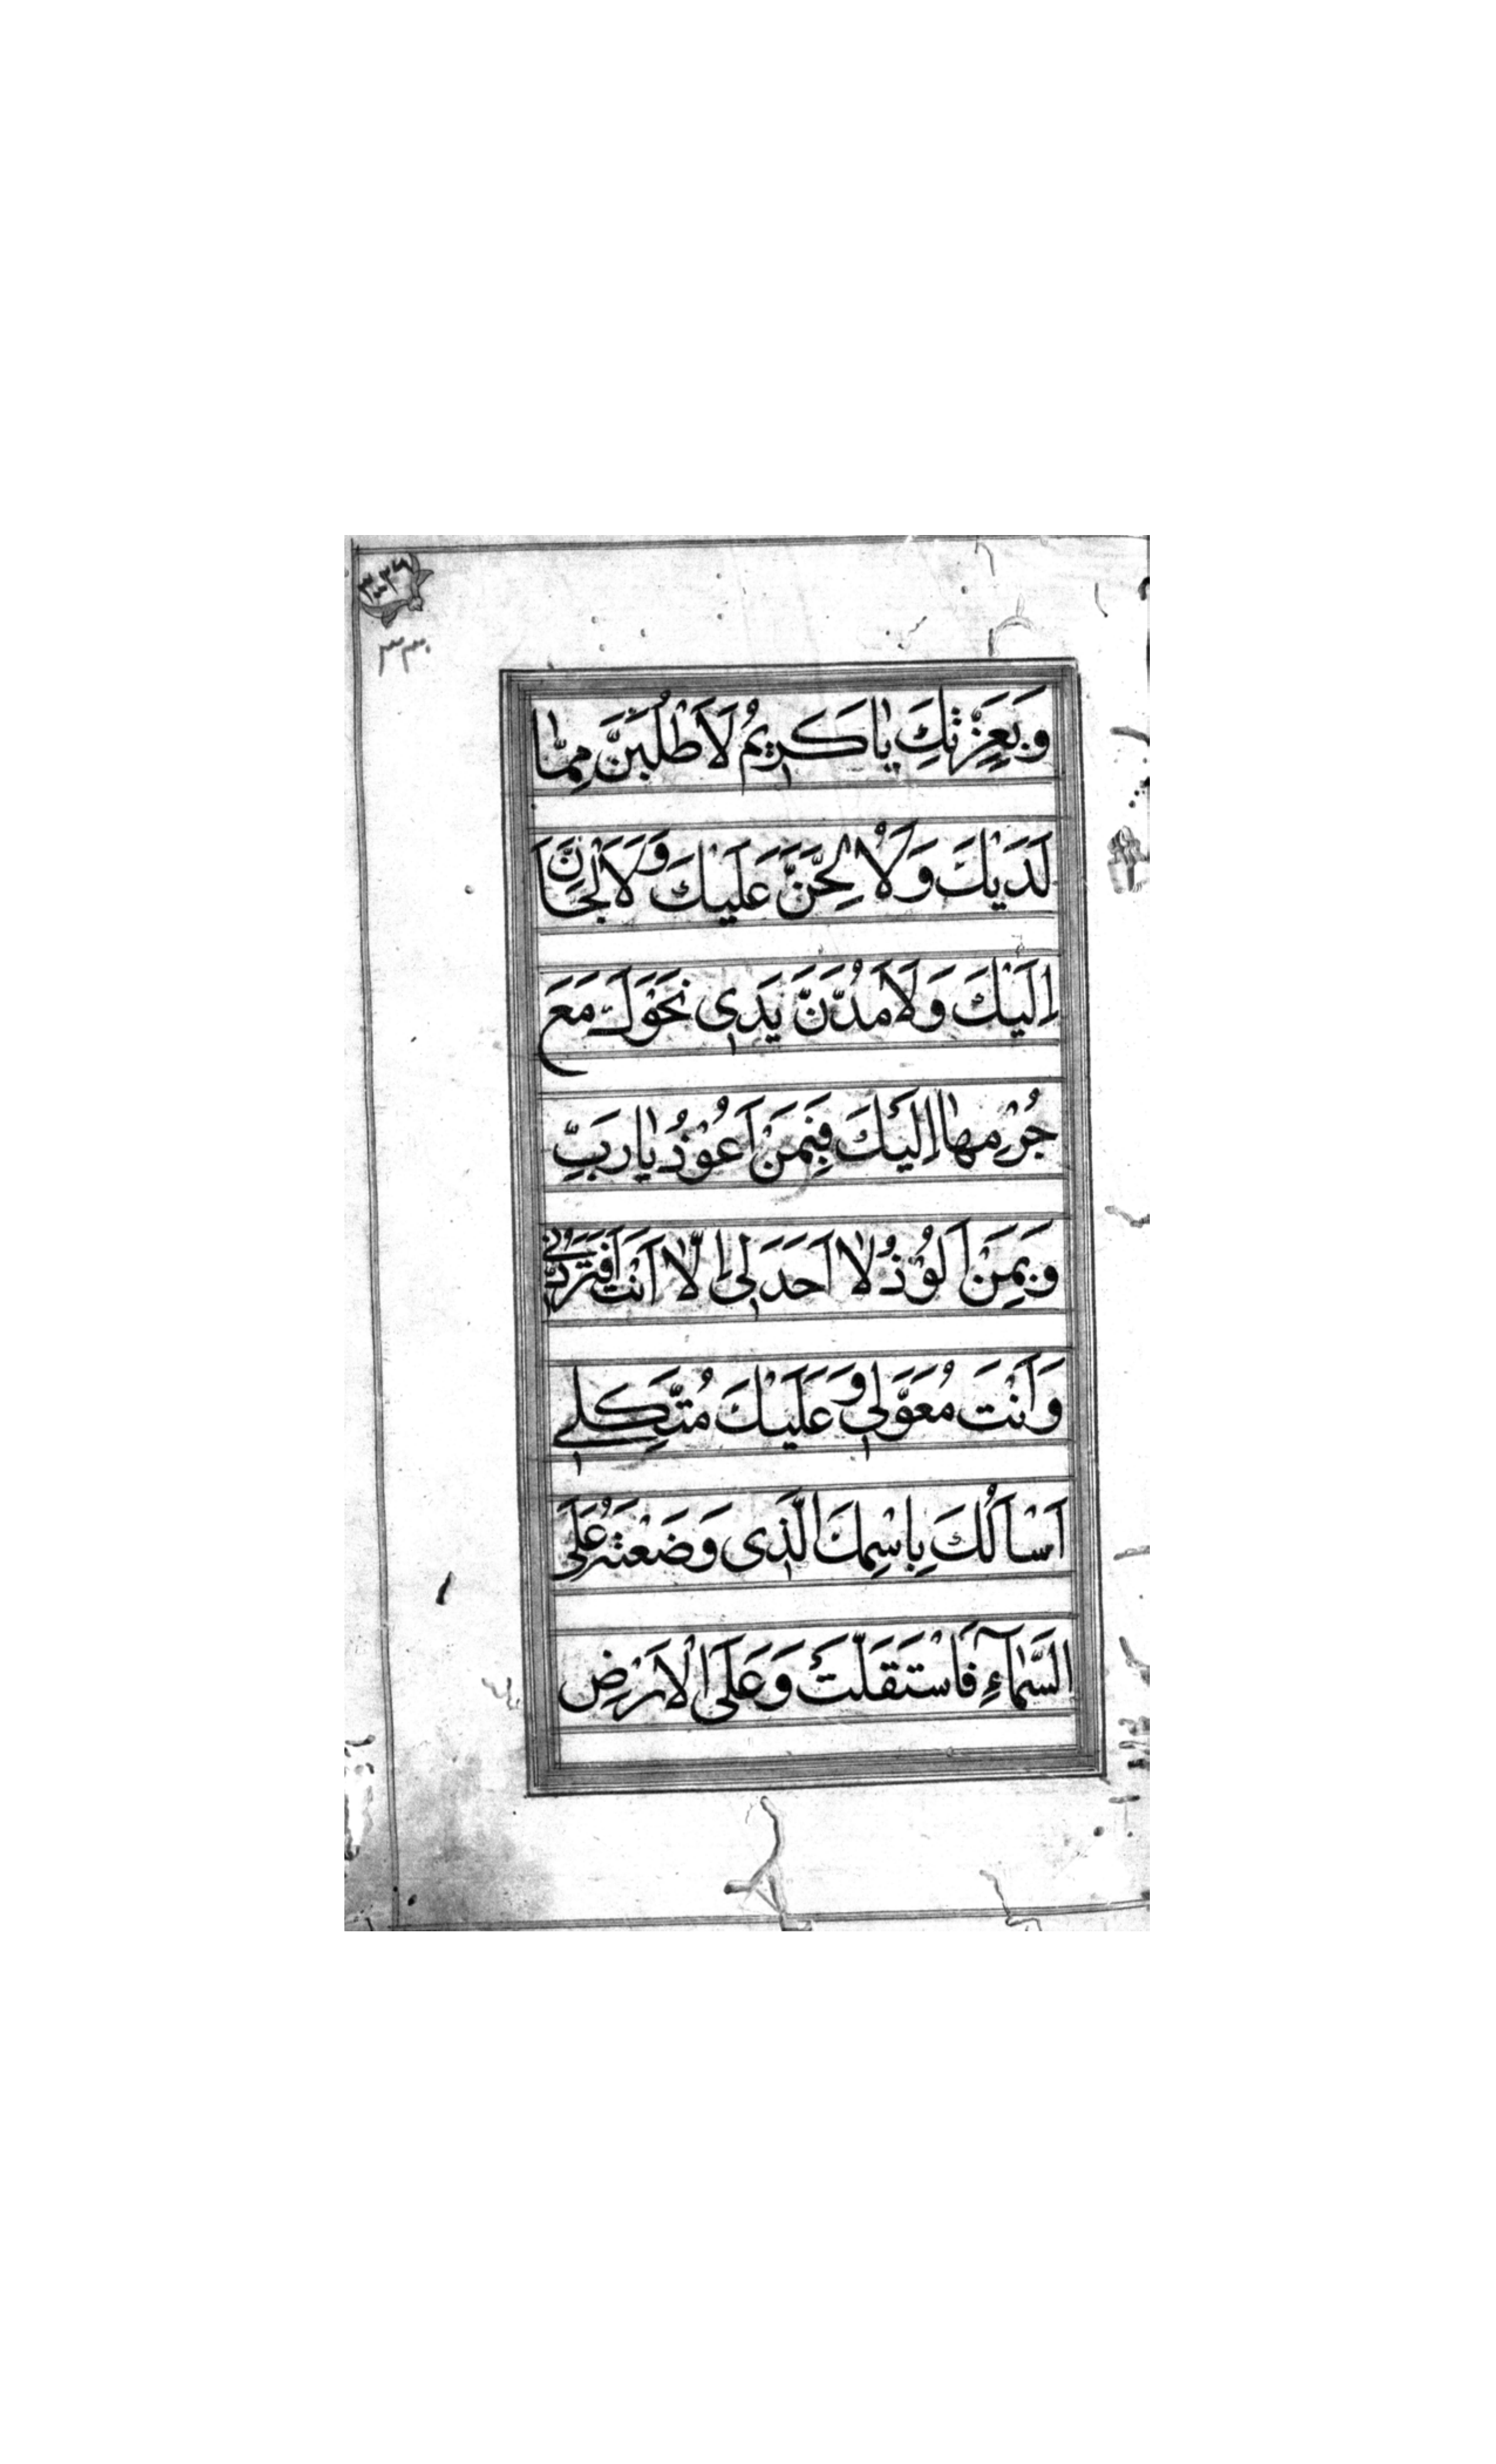 ٣٣٠
وَبِعِزَّتِكَ يٰا كَرِيمُ لَاَطْلُبَنَّ مِمّٰا
لَدَيْكَ وَلَاُلِحَّنَّ عَلَيْكَ وَلَاَلْجَاَنَّ
اِلَيْكَ وَلَاَمُدَّنَّ يَدِى نَحْوَكَ مَعَ
جُرْمِهٰا اِلَيْكَ فَبِمَنْ اَعُوْذُ يٰا رَبِّ
وَبِمَنْ اَلُوْذُ لٰا اَحَدَ لِى اِلّٰا اَنْتَ اَفَتَرُدُّنِى
وَاَنْتَ مُعَوَّلِى وَعَلَيْكَ مُتَّكَلِى
اَسْاَلُكَ بِاسْمِكَ الَّذِى وَضَعْتَهُ عَلَى
السَّمٰآءِ فَاسْتَقَلَّتْ وَعَلَى الْاَرْضِ